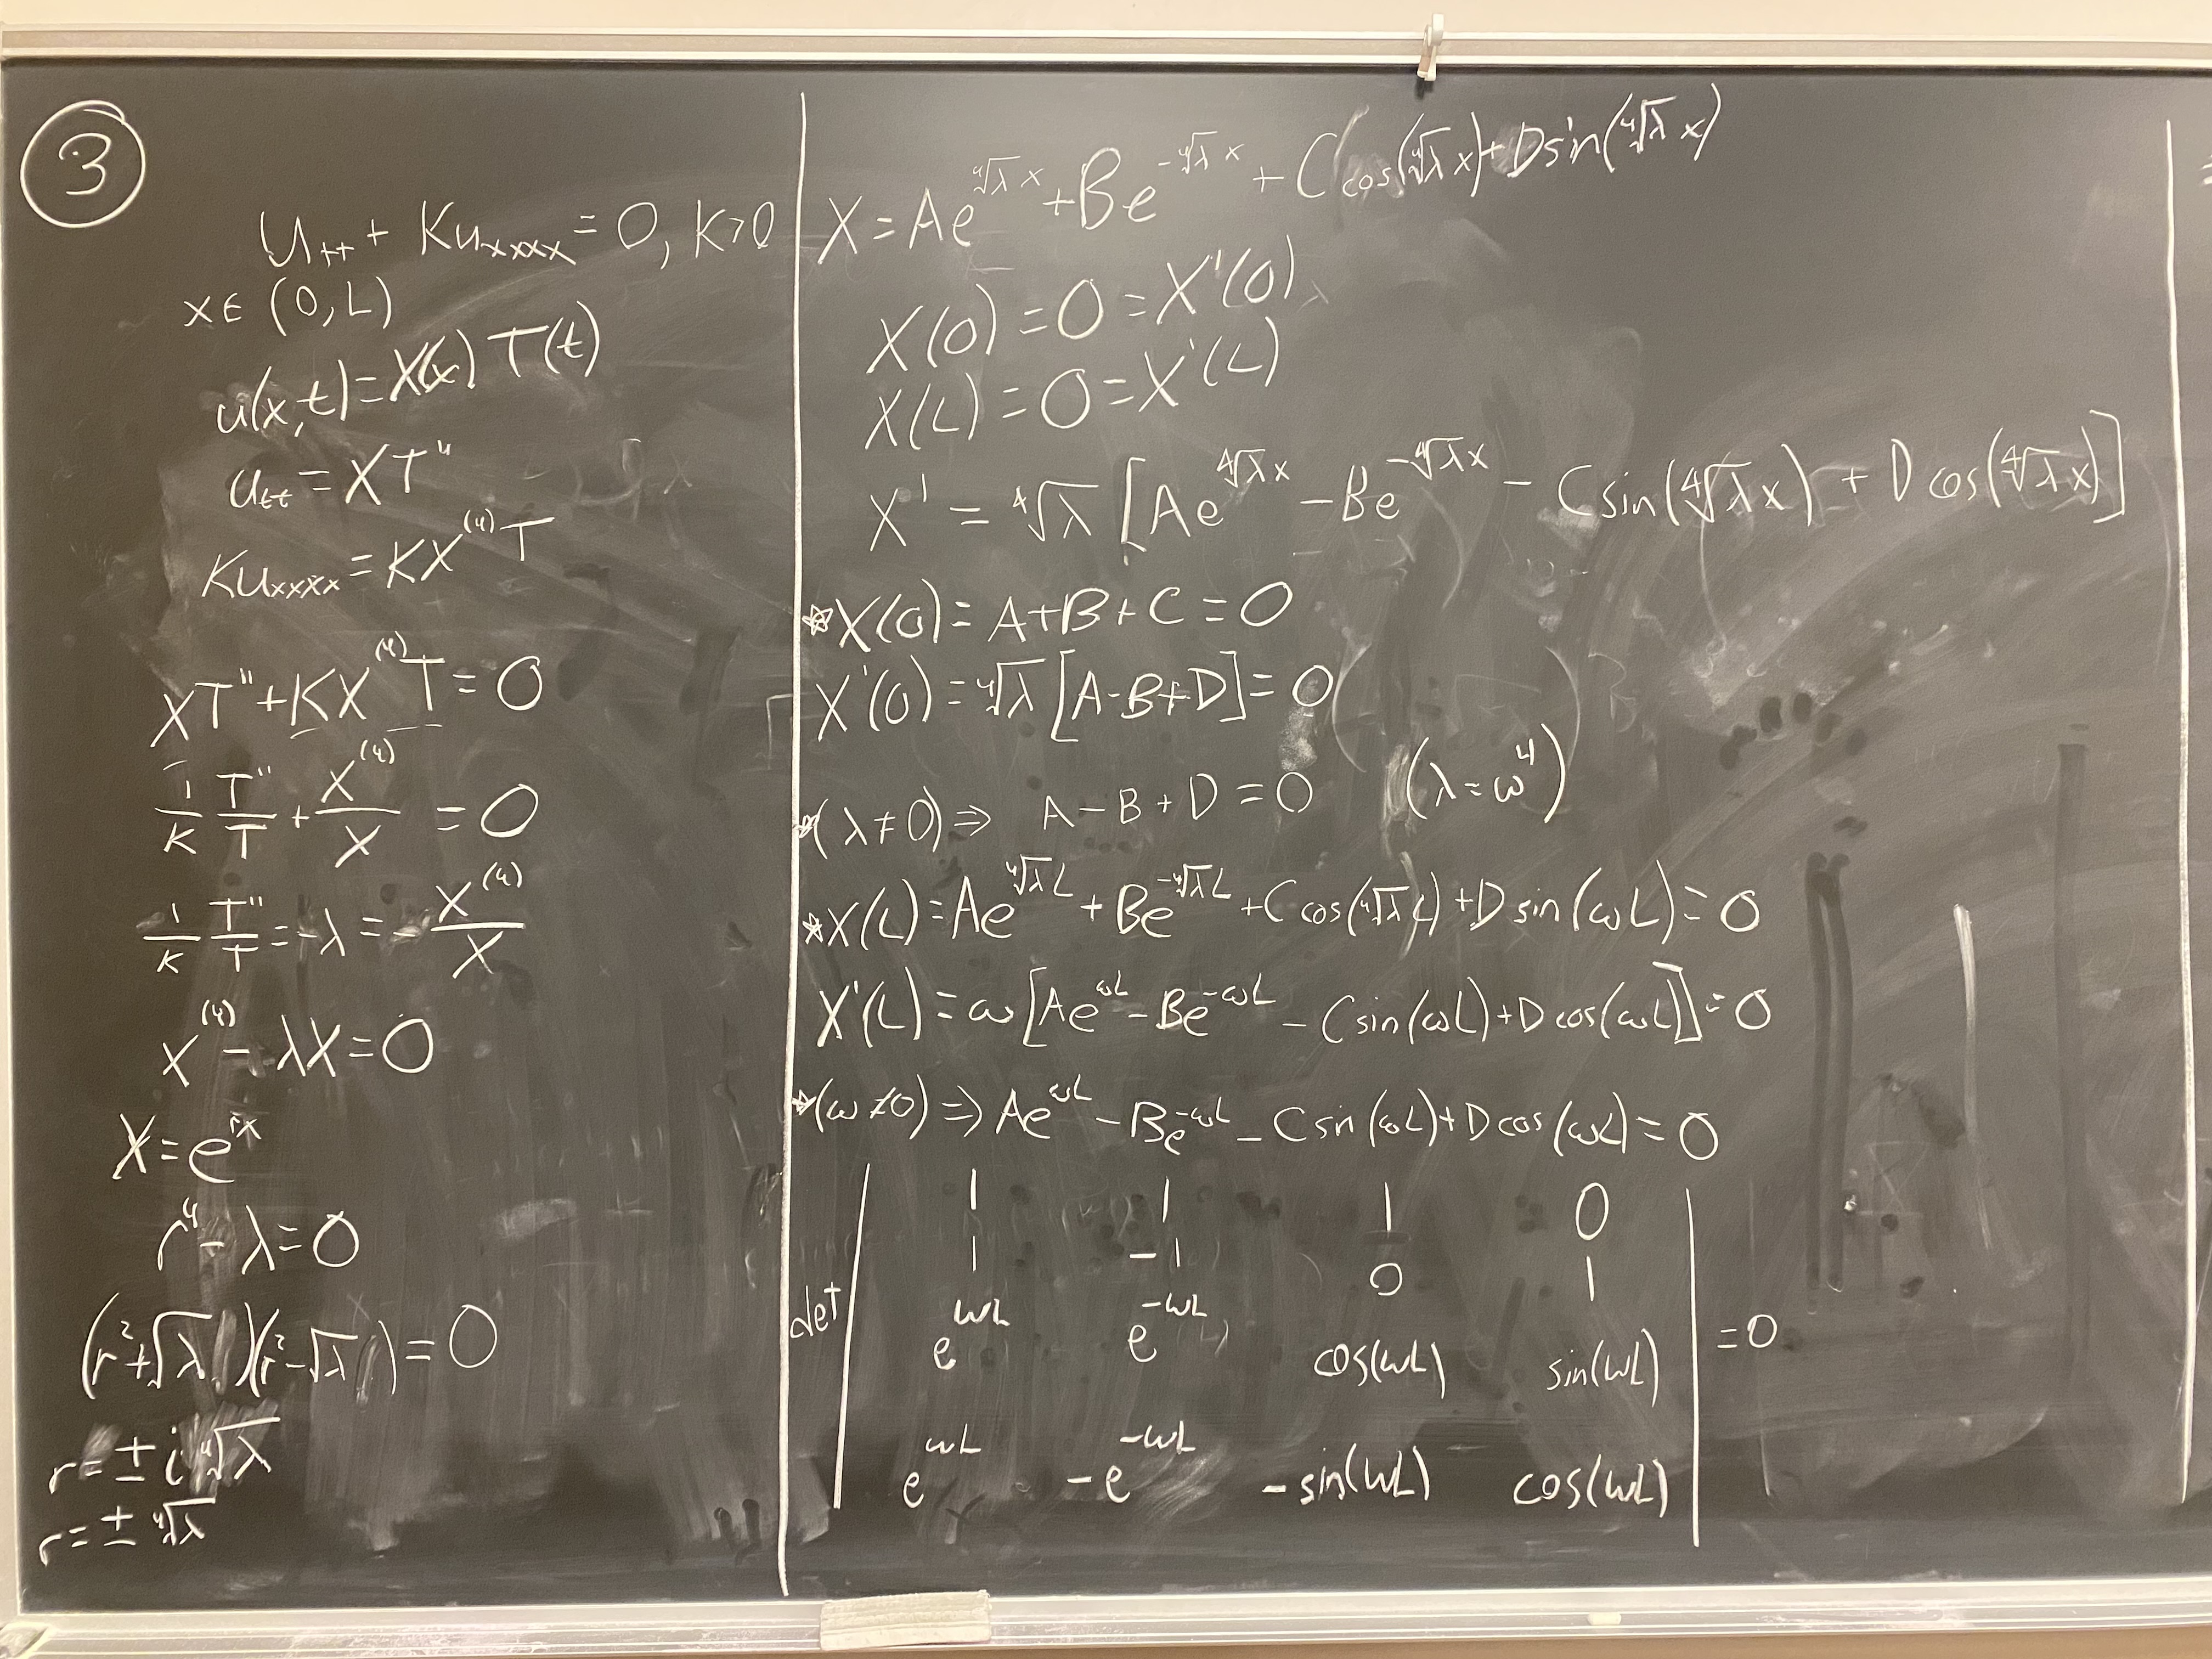 ③
u_tt + Ku_xxxx = 0, K>0
x∈ (0,L)
u(x,t)=X(x)T(t)
u_tt = XT''
Ku_xxxx = KX^(4)T
XT''+KX^(4)T=0
1/K T''/T + X^(4)/X = 0
1/K T''/T = -λ = -X^(4)/X
X^(4) - λX=0
X=e^rx
r^4 - λ=0
(r²+√λ)(r²-√λ)=0
r=± i ∜λ
r=± ∜λ
X=Ae^(∜λ x)+Be^(-∜λ x)+C cos(∜λ x)+D sin(∜λ x)
X(0)=0=X'(0)
X(L)=0=X'(L)
X' = ∜λ [Ae^(∜λ x) - Be^(-∜λ x) - C sin(∜λ x) + D cos(∜λ x)]
☆X(0)= A+B+C=0
X'(0)=∜λ[A-B+D]=0
☆(λ≠0)⇒ A-B+D=0 (λ=ω^4)
☆X(L)=Ae^(∜λ L)+Be^(-∜λ L)+C cos(∜λ L)+D sin(ωL)=0
X'(L)=ω[Ae^(ωL)-Be^(-ωL) - C sin(ωL)+D cos(ωL)]=0
☆(ω≠0)⇒Ae^(ωL) - Be^(-ωL) - C sin(ωL)+D cos(ωL)=0
1 1 1 0
1 -1 0 1
det e^(ωL) e^(-ωL) cos(ωL) sin(ωL) =0
e^(ωL) -e^(-ωL) -sin(ωL) cos(ωL)